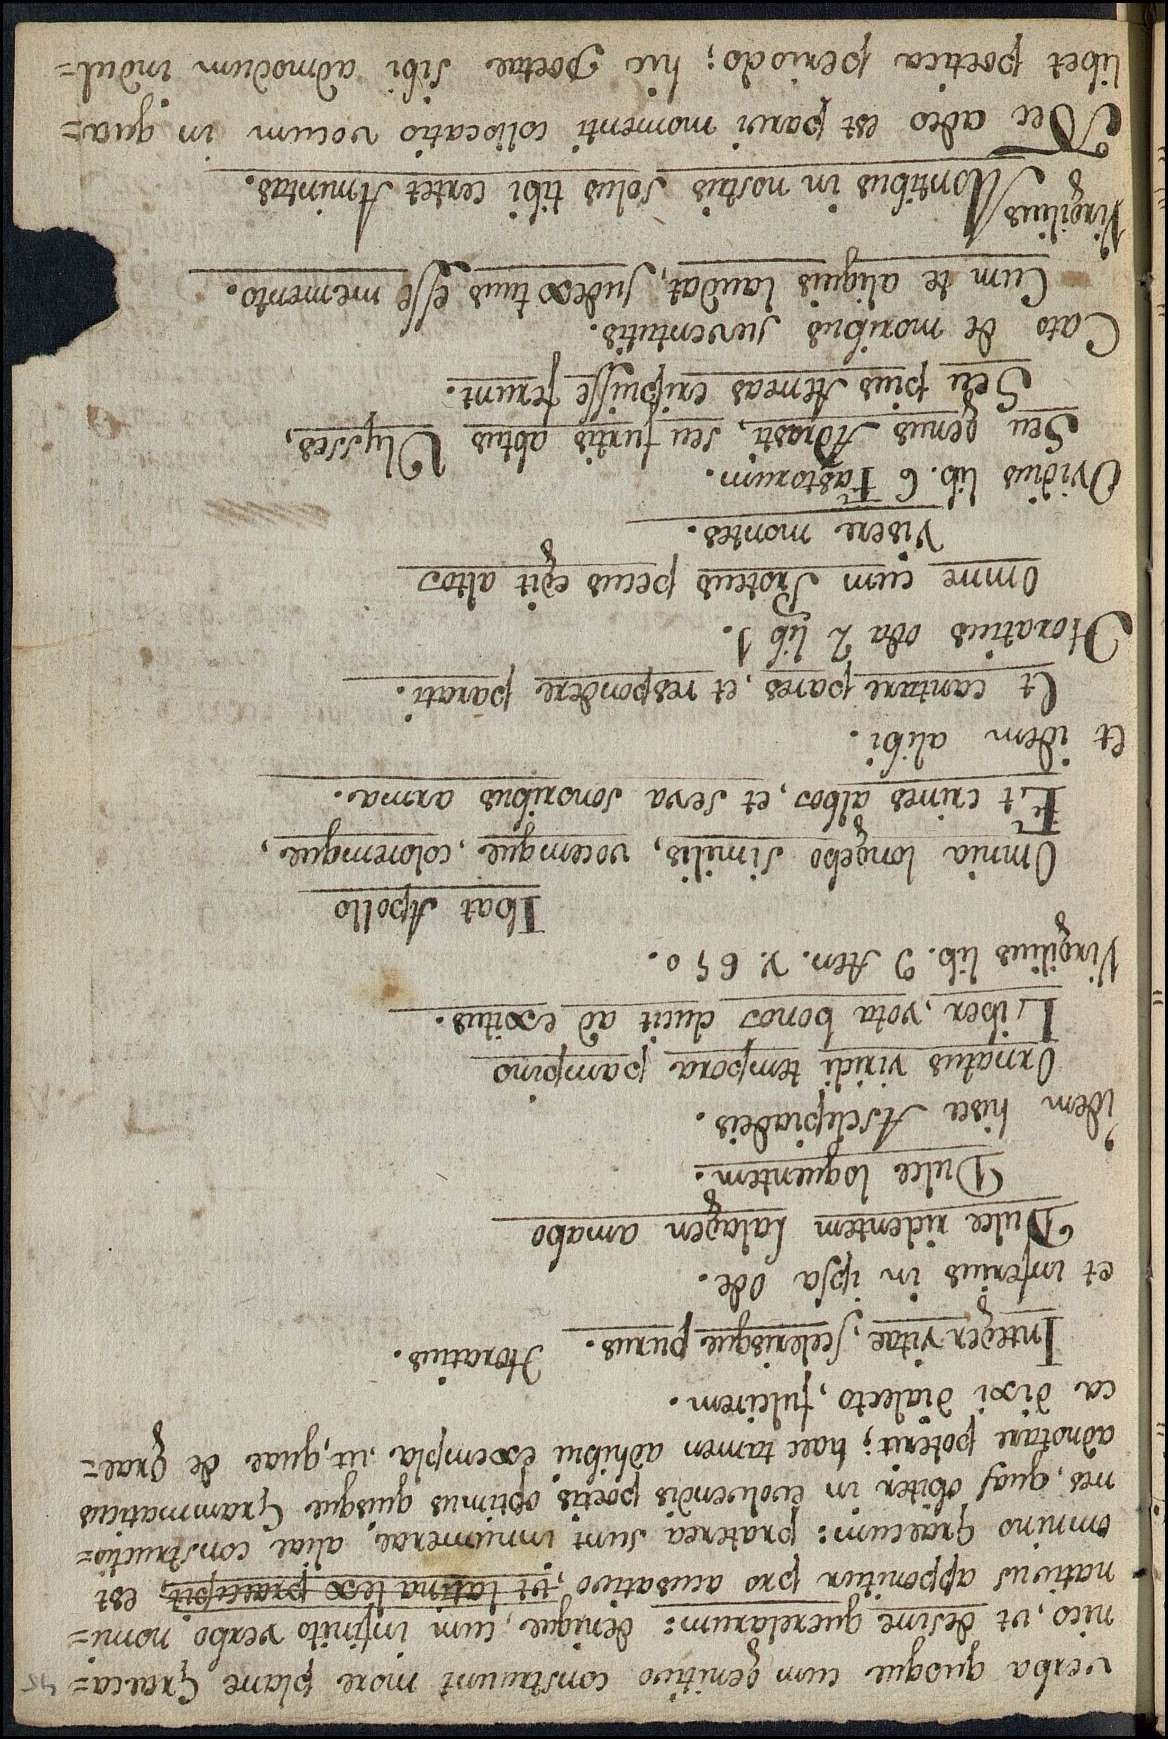 verba quoque cum genitivo construunt more plane Graeca=
nico, ut desine querelarum: denique, cum infinito verbo nomi=
nativus apponitur pro acusativo, ut latina lex praecipit, est
omnino Graecum: praterea sunt innumerae aliae constructio=
nes, quas obiter in evolvendis poetis optimus quisque Grammaticus
adnotare poterit; haec tamen adhibui exempla, ut, quae de Grae=
ca dixi dialecto, fulcirem.
Integer vitae, scelerisque purus. Horatius.
et inferius in ipsa ode.
Dulce ridentem Lalagen amabo
Dulce loquentem.
idem hisce Asclepiadeis.
Ornatus viridi tempora pampino
Liber, vota bonos ducit ad exitus.
Virgilius lib. 9 Aen. v. 650.
Ibat Apollo
Omnia longebo similis, vocemque, coloremque,
Et crines albos, et seva sonoribus arma.
et idem alibi.
Et cantare pares, et respondere parati.
Horatius oda 2 lib 1.
Omne cum Proteus pecus egit altos
Visere montes.
Ovidius lib. 6 Fastorum.
Seu genus Adrasti, seu furtis abtus Ulysses,
Seu pius Aeneas eripuisse ferunt.
Cato de moribus juventutis.
Cum te aliquis laudat, judex tuus esse memento.
Virgilius Montibus in nostris solus tibi certet Amintas.
Nec adeo est parvi momenti collocatio vocum in qua=
libet poetica periodo; hic poetae sibi admodum indul=